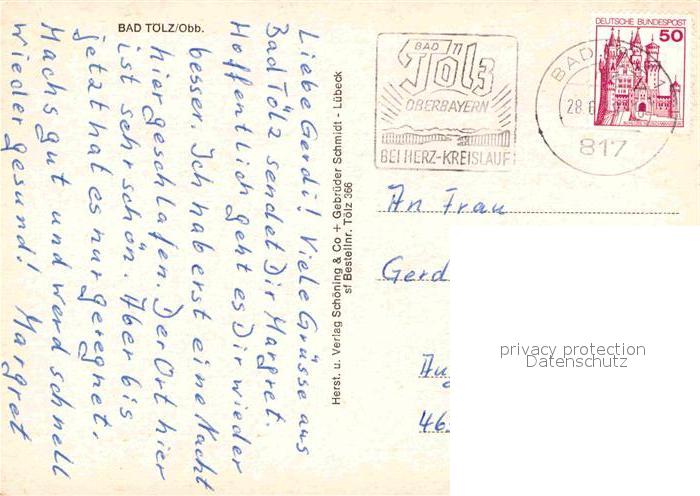 BAD TÖLZ/Obb.
Liebe Gerdi! Viele Grüsse aus
Bad Tölz sendet Dir Margret.
Hoffentlich geht es Dir wieder
besser. Ich hab erst eine Nacht
hier geschlafen. Der Ort hier
ist sehr schön. Aber bis
jetzt hat es nur geregnet.
Machs gut und werd schnell
wieder gesund! Margret
Herst. u. Verlag Schöning & Co + Gebrüder Schmidt - Lübeck
sf Bestellnr. Tölz 366
BAD
Tölz
OBERBAYERN
BEI HERZ-KREISLAUF
BAD
28.
817
DEUTSCHE BUNDESPOST
50
An Frau
Gerd
46
privacy protection
Datenschutz